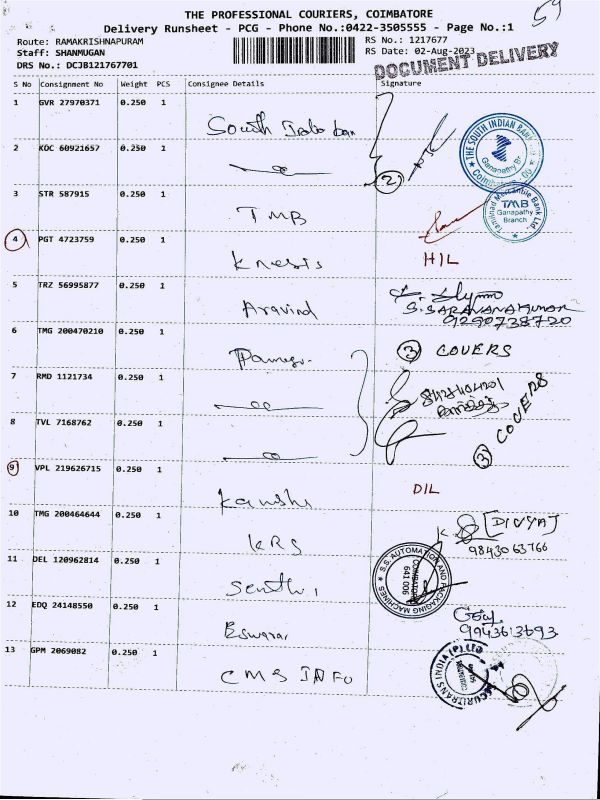 59
THE PROFESSIONAL COURIERS, COIMBATORE
Delivery Runsheet - PCG - Phone No.:0422-3505555 - Page No.:1
Route: RAMAKRISHNAPURAM RS No.: 1217677
Staff: SHANMUGAN RS Date: 02-Aug-2023
DRS No.: DCJB121767701 DOCUMENT DELIVERY
S No Consignment No Weight PCS Consignee Details Signature
1 GVR 27970371 0.250 1 South
THE SOUTH INDIAN BANK
Ganapathy Br
Coimbatore
2 KOC 60921657 0.250 1 2
3 STR 587915 0.250 1 TMB
Tamilnad Mercantile Bank Ltd.
TMB
Ganapathy
Branch
4 PGT 4723759 0.250 1 HIL
5 TRZ 56995877 0.250 1 Aravind
S.SARAVANAKUMAR
9290738720
6 TMG 200470210 0.250 1 3 COVERS
7 RMD 1121734 0.250 1
8 TVL 7168762 0.250 1 3 COVERS
9 VPL 219626715 0.250 1 DIL
10 TMG 200464644 0.250 1 KRS [DIVYA]
9843063766
11 DEL 120962814 0.250 1
S.S. AUTOMATION AND PACKAGING MACHINES
COIMBATORE
641 006
12 EDQ 24148550 0.250 1 Eswarar
9943613693
13 GPM 2069082 0.250 1 CMS INFO
SECURITRANS INDIA (P) LTD